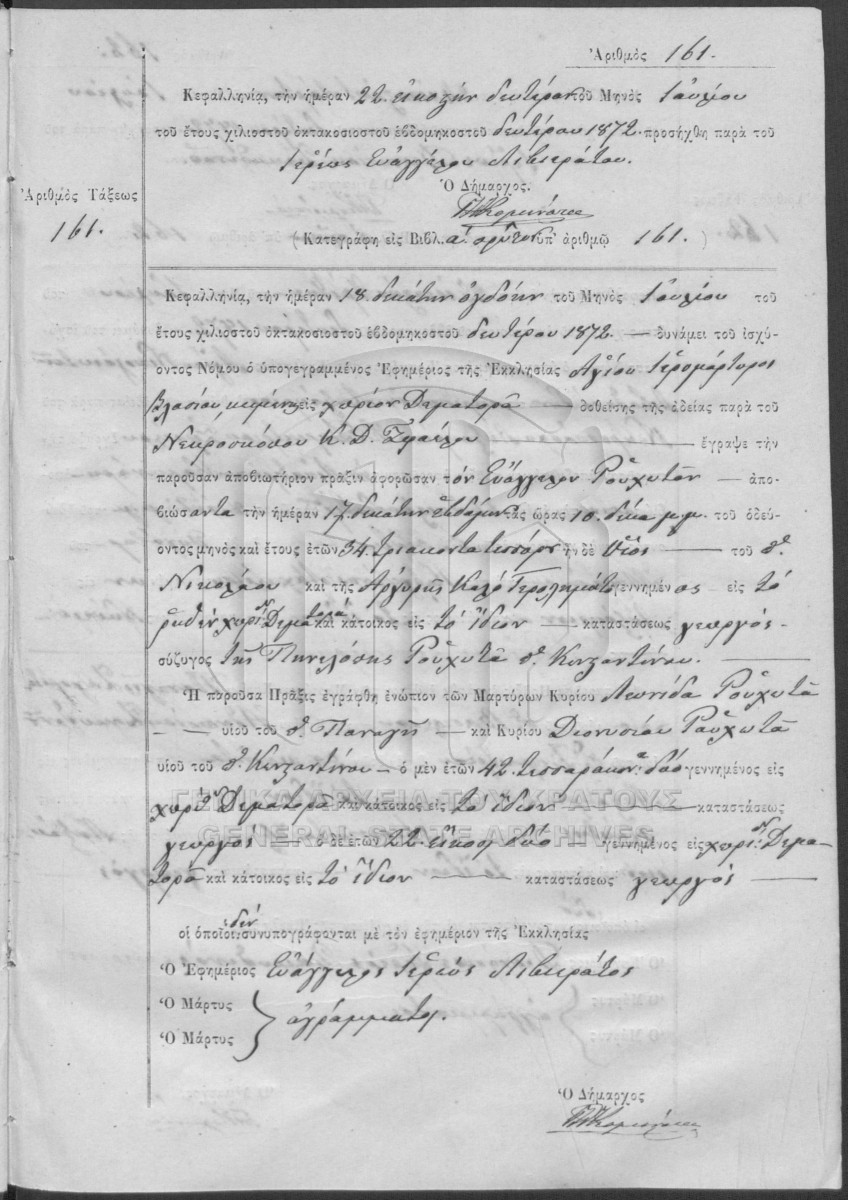 Ἀριθμὸς 161.
Κεφαλληνία, τὴν ἡμέραν 22. εἰκοστὴν δευτέραν τοῦ Μηνὸς Ἰουλίου
τοῦ ἔτους χιλιοστοῦ ὀκτακοσιοστοῦ ἑβδομηκοστοῦ δευτέρου 1872. προσήχθη παρὰ τοῦ
Ἱερέως Εὐαγγέλου Λιβιεράτου.
Ὁ Δήμαρχος.
Ἀριθμὸς Τάξεως
161.
(Κατεγράφη εἰς Βιβλ. ὑπ' ἀριθμῷ 161.)
Κεφαλληνία, τὴν ἡμέραν 18. δεκάτην ὀγδόην τοῦ Μηνὸς Ἰουλίου τοῦ
ἔτους χιλιοστοῦ ὀκτακοσιοστοῦ ἑβδομηκοστοῦ δευτέρου 1872. — δυνάμει τοῦ ἰσχύ-
οντος Νόμου ὁ ὑπογεγραμμένος Ἐφημέριος τῆς Ἐκκλησίας Ἁγίου Ἱερομάρτυρος
Βλασίου, κειμένης εἰς χωρίον Δεματορᾶ — δοθείσης τῆς ἀδείας παρὰ τοῦ
Νεκροσκόπου Κ. Δ. — ἔγραψε τὴν
παροῦσαν ἀποβιωτήριον πρᾶξιν ἀφορῶσαν τὸν Εὐάγγελον Ῥουχωτᾶν — ἀπο-
βιώσαντα τὴν ἡμέραν 17. δεκάτην ἑβδόμην τὰς ὥρας 10. δέκα μ.μ. τοῦ ὁδεύ-
οντος μηνὸς καὶ ἔτους ἐτῶν 34. τριακοντατεσσάρων ἦν δὲ υἱὸς — τοῦ π.
Νικολάου καὶ τῆς Ἀργυρῆς Καλο γεννημένος — εἰς τὸ
ῥηθὲν χωρίον Δεματορᾶ καὶ κάτοικος εἰς τὸ ἴδιον — καταστάσεως γεωργός
σύζυγος τῆς Πηνελόπης Ῥουχωτᾶ π. Κωνσταντίνου. —
Ἡ παροῦσα Πρᾶξις ἐγράφθη ἐνώπιον τῶν Μαρτύρων Κυρίου Λεωνίδα Ῥουχωτᾶ
— υἱοῦ τοῦ π. Παναγῆ — καὶ Κυρίου Διονυσίου Ῥουχωτᾶ
υἱοῦ τοῦ π. Κωνσταντίνου — ὁ μὲν ἐτῶν 42. τεσσαράκοντα δύο γεννημένος εἰς
χωρίον Δεματορᾶ καὶ κάτοικος εἰς τὸ ἴδιον — καταστάσεως
γεωργός — ὁ δὲ ἐτῶν 22. εἴκοσι δύο γεννημένος εἰς χωρίον Δεμα-
τορᾶ καὶ κάτοικος εἰς τὸ ἴδιον — καταστάσεως γεωργός —
οἱ ὁποῖοι δὲν συνυπογράφονται μὲ τὸν ἐφημέριον τῆς Ἐκκλησίας
Ὁ Ἐφημέριος Εὐάγγελος Ἱερεὺς Λιβιεράτος
Ὁ Μάρτυς
Ὁ Μάρτυς
ἀγράμματοι.
Ὁ Δήμαρχος
ΓΕΝΙΚΑ ΑΡΧΕΙΑ ΤΟΥ ΚΡΑΤΟΥΣ
GENERAL STATE ARCHIVES